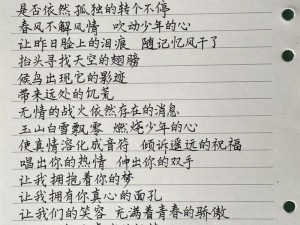 是否依然孤独的转个不停
春风不解风情 吹动少年的心
让昨日脸上的泪痕 随记忆风干了
抬头寻找天空的翅膀
候鸟出现它的影迹
带来远处的饥荒
无情的战火依然存在的消息
玉山白雪飘零 燃烧少年的心
使真情溶化成音符 倾诉遥远的祝福
唱出你的热情 伸出你的双手
让我拥抱着你的梦
让我拥有你真心的面孔
让我们的笑容 充满着青春的骄傲